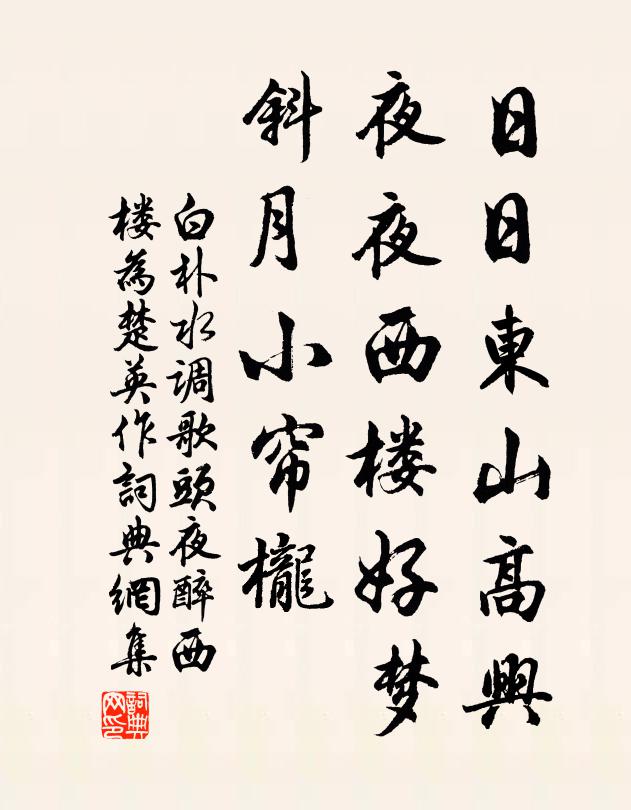 日日東山高興
夜夜西楼好梦
斜月小帘櫳
白朴水调歌头夜醉西
楼為楚英作詞典網集
詞典
网印